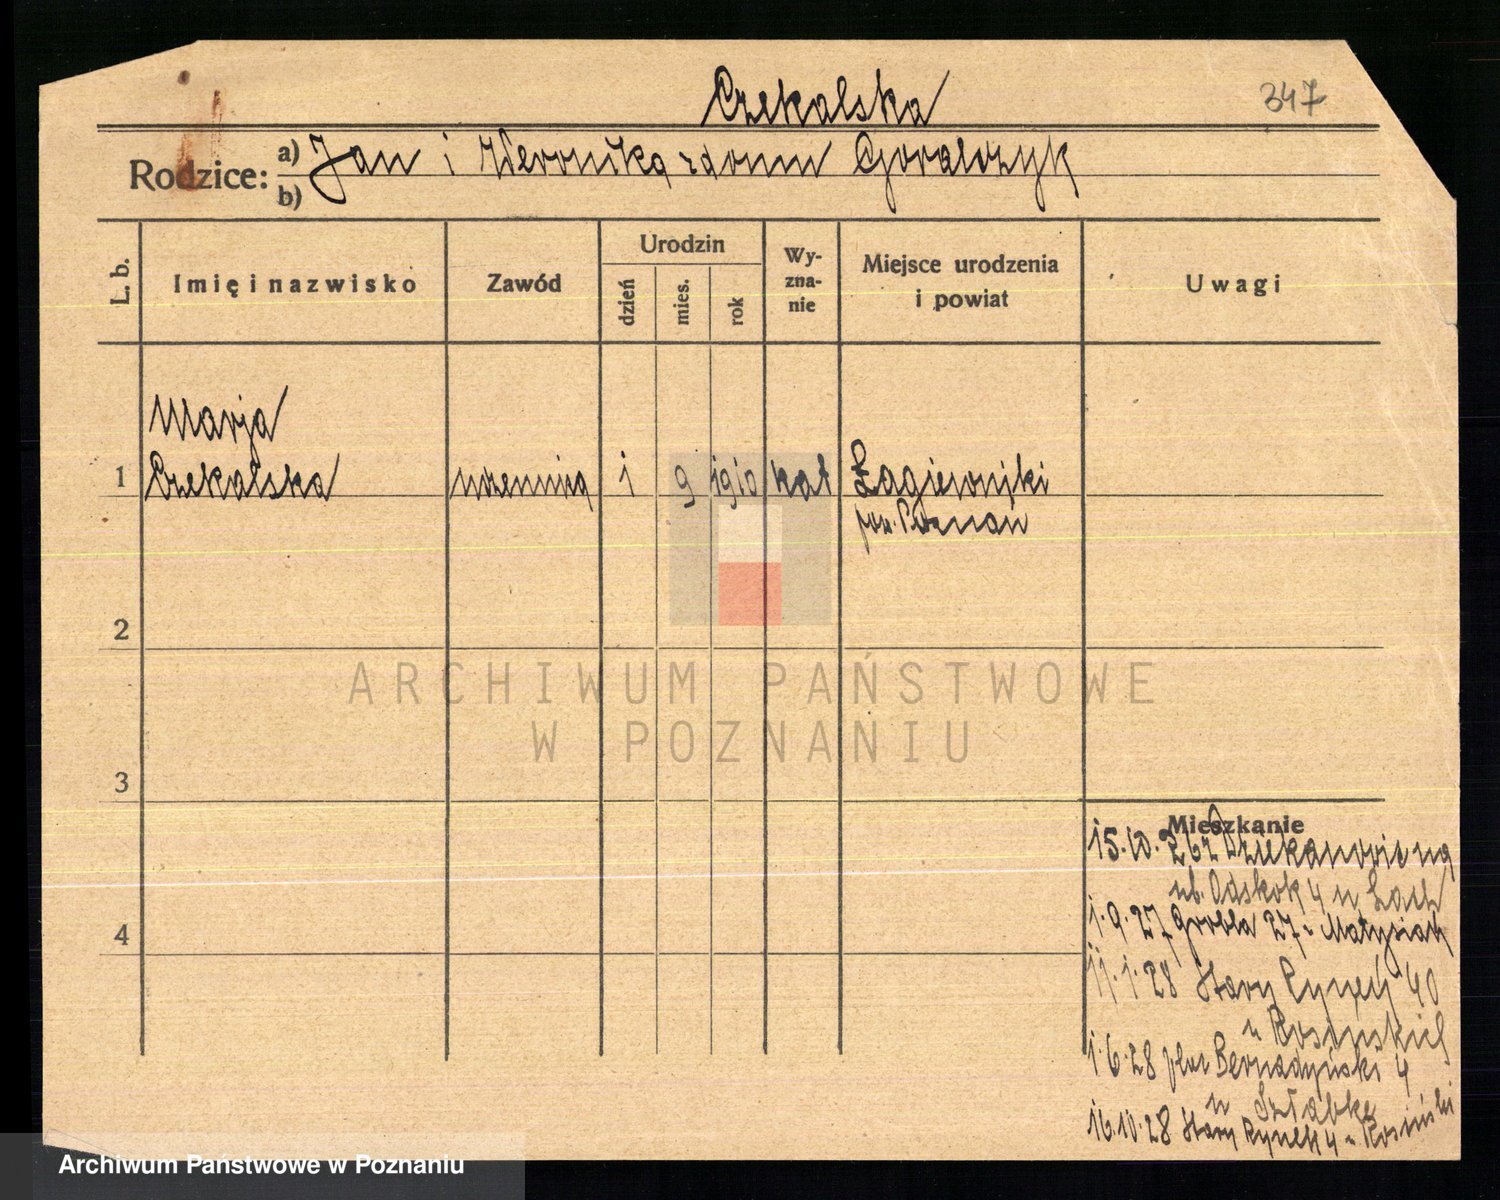 Czekalska
347
Rodzice:
a) Jan i Weronika z domu Goralczyk
b)
L. b.
Imię i nazwisko
Zawód
Urodzin
dzień
mies.
rok
Wy-
zna-
nie
Miejsce urodzenia
i powiat
Uwagi
Marja
1 Czekalska uczennica 1 9 1910 kat Łagiewniki
pow. Poznań
2
ARCHIWUM PAŃSTWOWE
W POZNANIU
3
Mieszkanie
15.10.26 z Dziekanowic na
ul. Odskok 4 u Lach
1.9.27 Grobla 27 u Matysiak
11.1.28 Stary Rynek 40
u Rosinskich
1.6.28 plac Bernadyński 4
u
4
16.10.28 Stary Rynek 4 u Rosiński
Archiwum Państwowe w Poznaniu